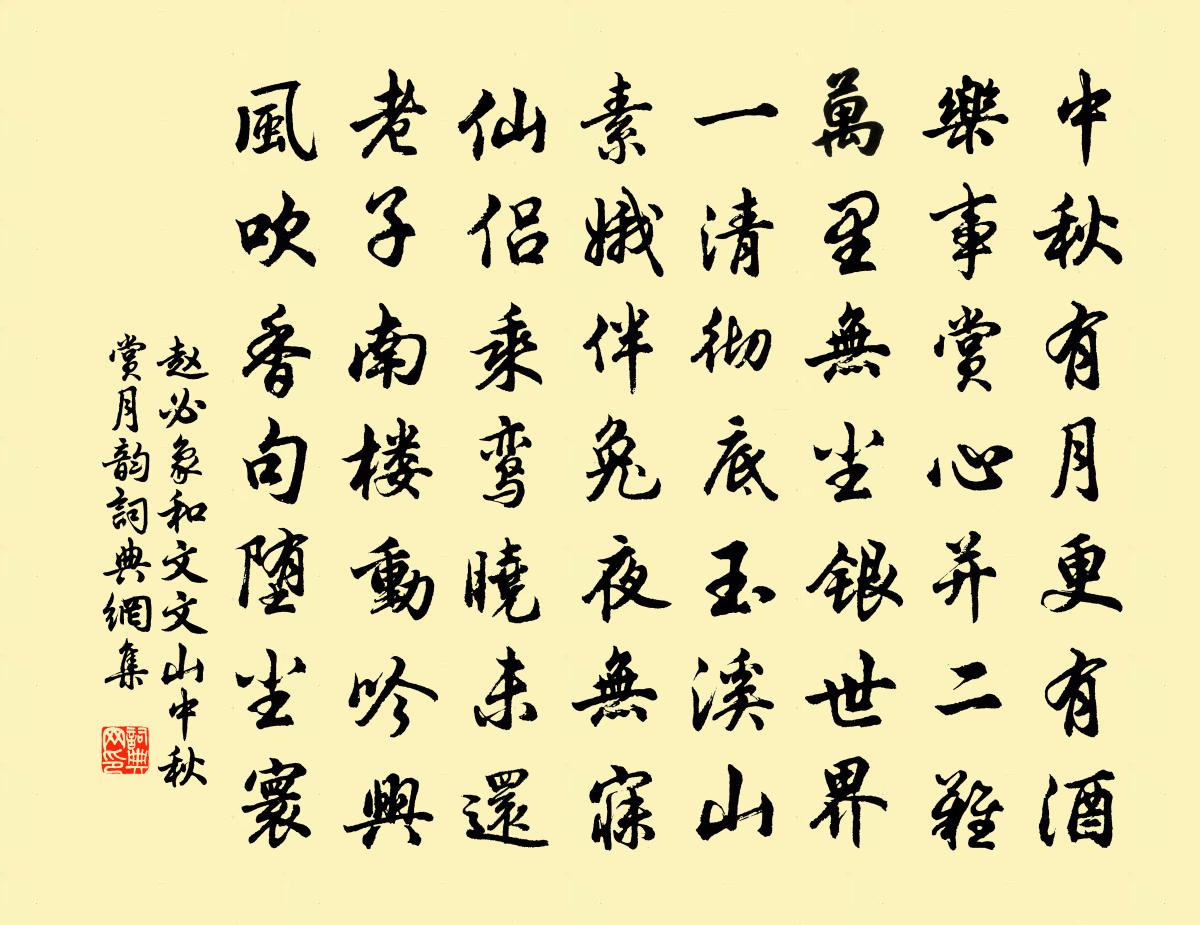 中秋有月更有酒
樂事賞心并二難
萬里無尘銀世界
一清彻底玉溪山
素娥伴兔夜無寐
仙侣乘鸾曉未還
老子南楼動吟興
風吹香句堕尘寰
赵必象和文文山中秋
赏月韵詞典網集
詞典
网印